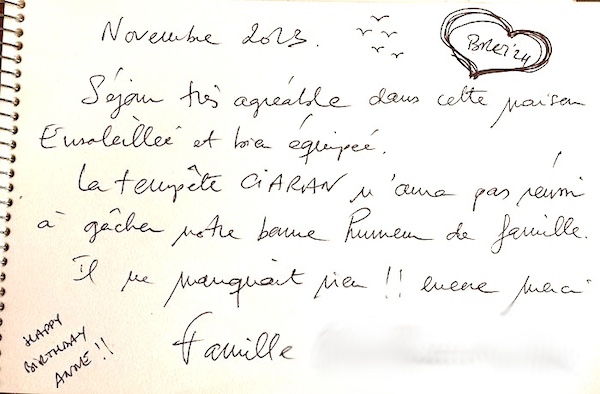 Novembre 2023.
BREIZ'24
Séjour très agréable dans cette maison
Ensoleillée et bien équipée.
La tempête CIARAN n'aura pas réussi
à gâcher notre bonne humeur de famille.
Il ne manquait rien !! encore merci
Famille
HAPPY
BIRTHDAY
ANNE !!